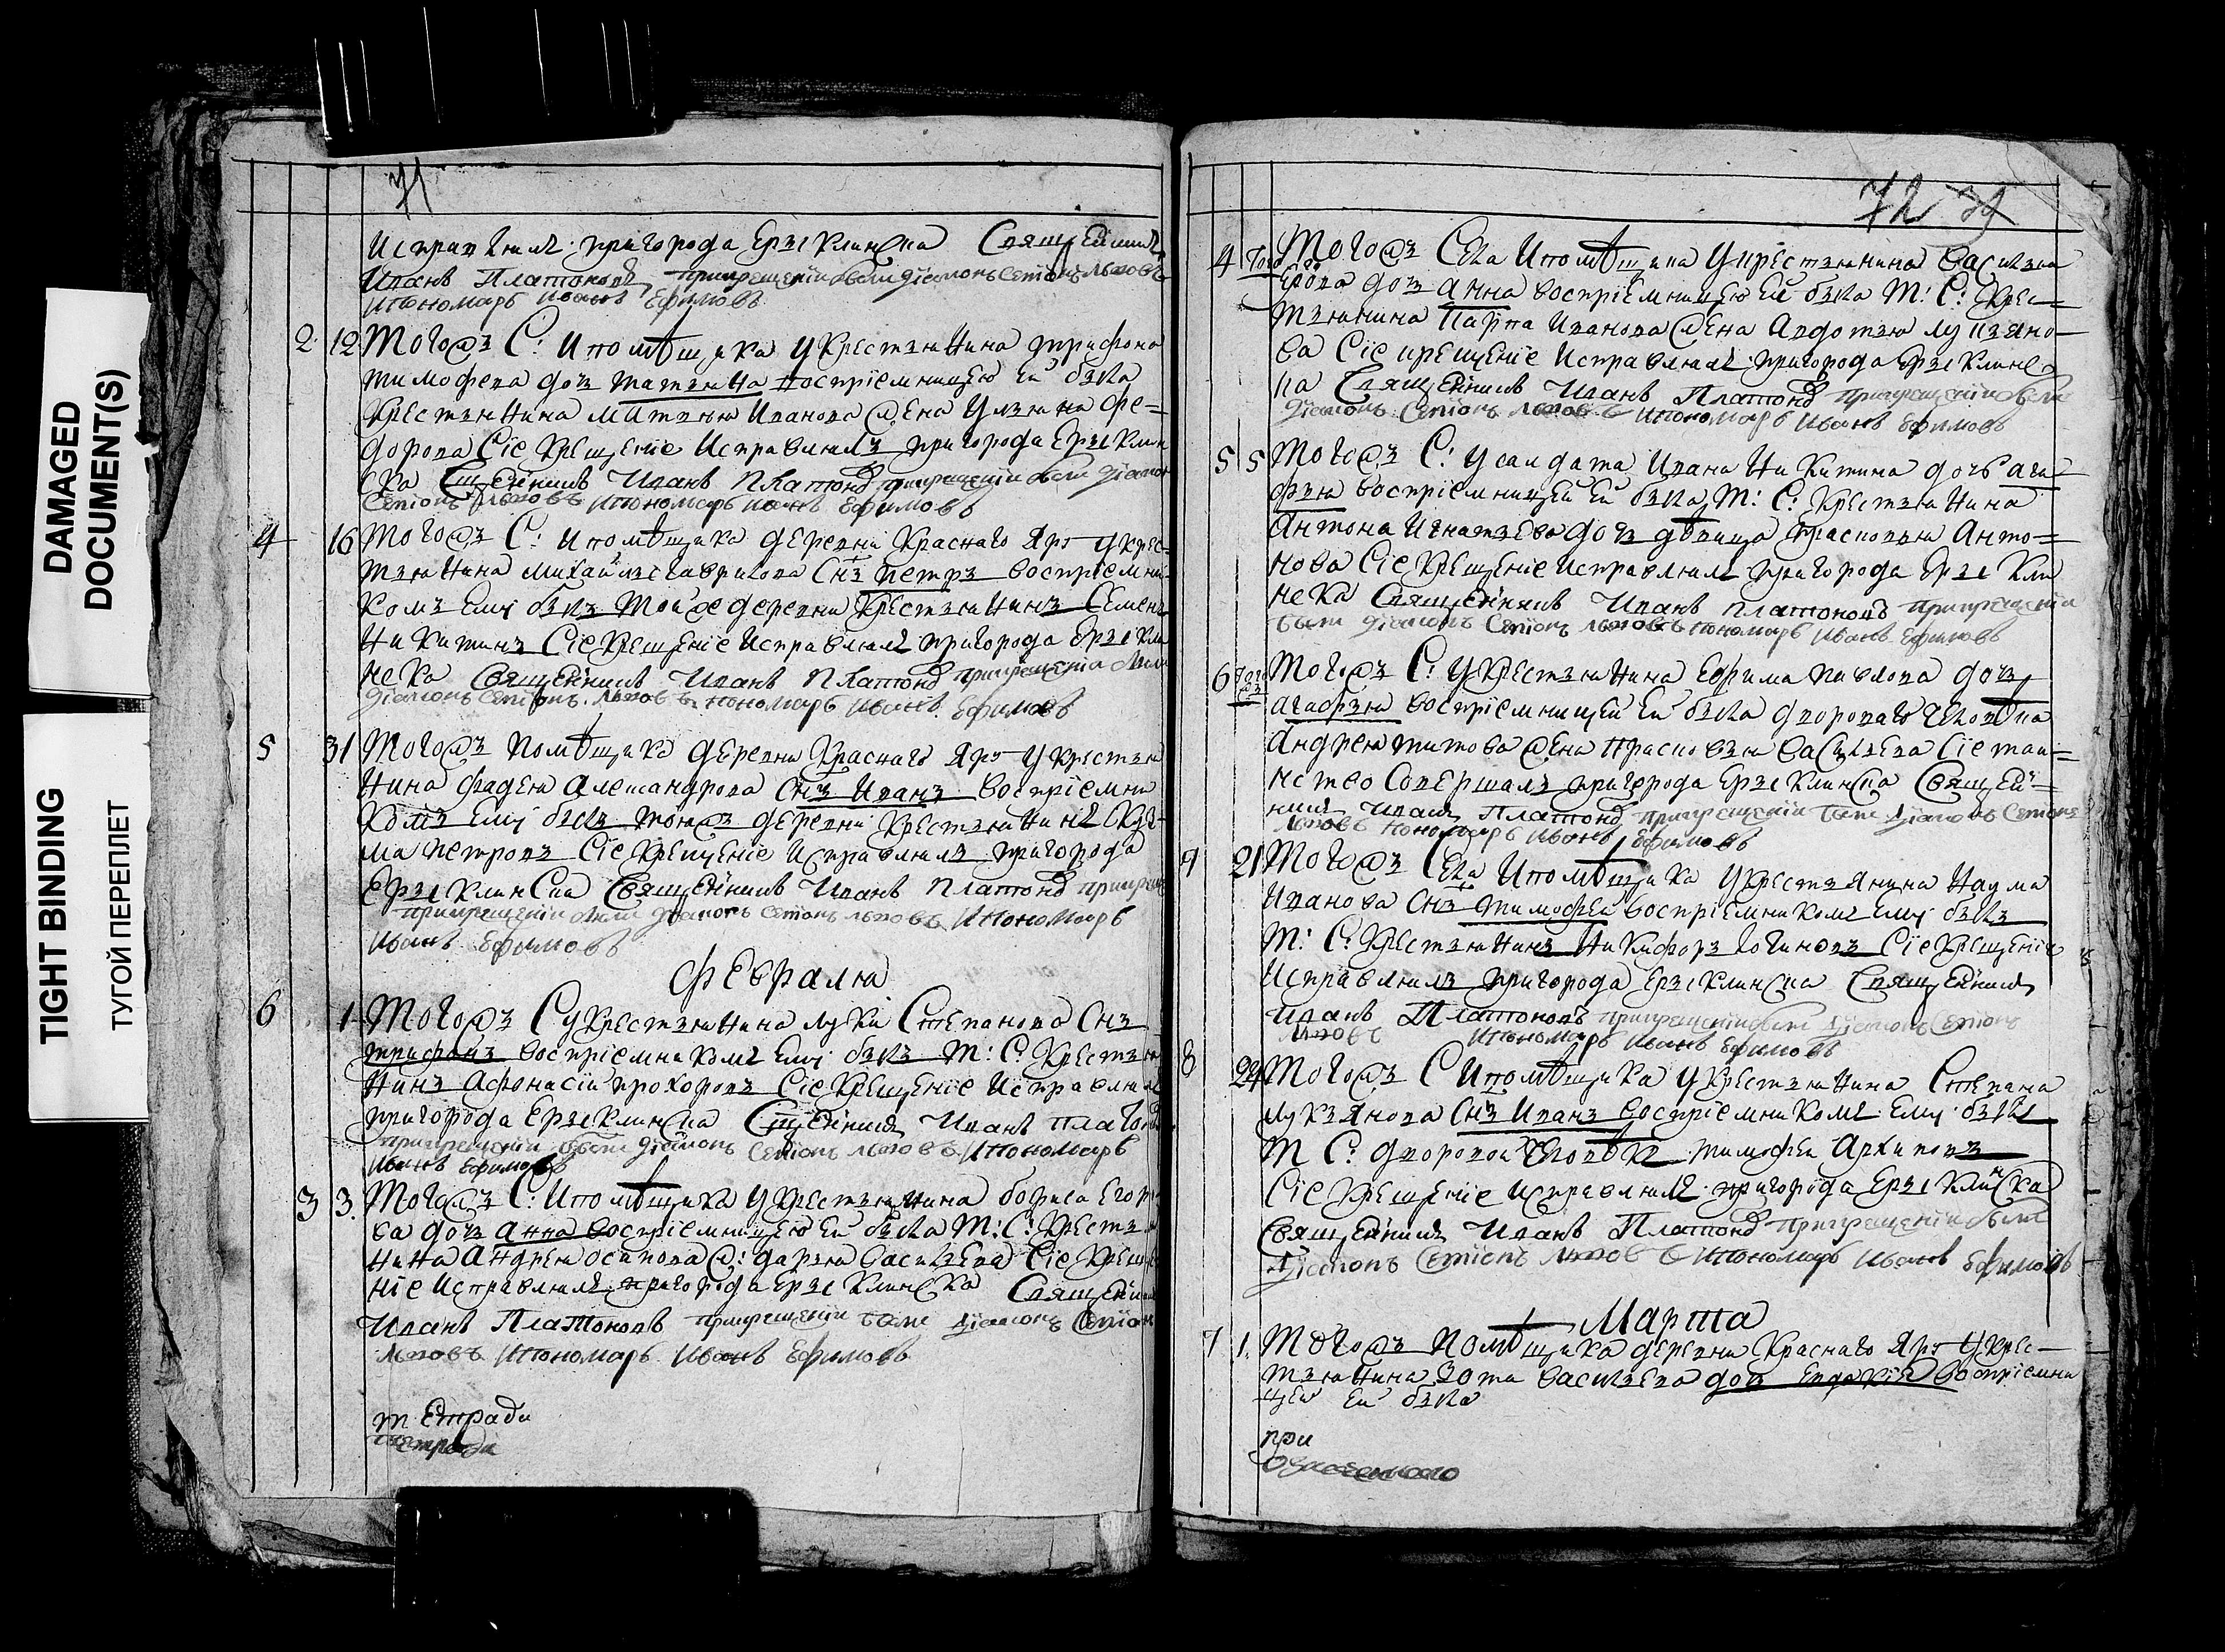 DAMAGED
DOCUMENT(S)
TIGHT BINDING
ТУГОЙ ПЕРЕПЛЕТ
71
исправлялъ пригорода Ерыклинска Священникъ
Иванъ Платоновъ при крещении были диаконъ Семионъ Львовъ
и пономарь Иванъ Ефимовъ
2 12 Тогожъ С: и помѣщика у крестьянина Трифона
Тимофева дочь Татьяна восприемницею ей была
крестьянина Матвея Иванова жена Ульяна Фе=
дорова Сие крещение исправлялъ пригорода Ерыклин
ска Сщенникъ Иванъ Платоновъ при крещении были диаконъ
Семионъ Львовъ и пономарь Иванъ Ефимовъ
4 16 Тогожъ С: и помѣщика деревни Краснаго Яру у крес=
тьянина Михайлы Гаврилова снъ Петръ восприемни
комъ ему былъ тойже деревни крестьянинъ Семенъ
Никитинъ Сие крещение исправлялъ пригорода Ерыкли
нска Священникъ Иванъ Платоновъ при крещении были
диаконъ Семионъ Львовъ пономарь Иванъ Ефимовъ
5 31 Тогожъ помѣщика деревни Краснаго Яру у крестья
нина Фадея Александрова снъ Иванъ восприемни
комъ ему былъ тояжъ деревни крестьянинъ Кузь
ма Петровъ Сие крещение исправлялъ пригорода
Ерыклинска Священникъ Иванъ Платоновъ
при крещении были диаконъ Семионъ Львовъ и пономарь
Иванъ Ефимовъ
Февраля
6 1 Тогожъ С у крестьянина Луки Степанова снъ
Трифонъ восприемникомъ ему былъ Т: С: крестья
нинъ Афонасий Прохоровъ Сие крещение исправлялъ
пригорода Ерыклинска Сщенникъ Иванъ Платоновъ
при крещении были диаконъ Семионъ Львовъ и пономарь
Иванъ Ефимовъ
3 3 Тогожъ С: и помѣщика у крестьянина Бориса Егоро
ва дочь Анна восприемницею ей была Т: С: крестья
нина Андрея Осипова ж: Дарья Васильева Сие креще
ние исправлялъ пригорода Ерыклинска Священникъ
Иванъ Платоновъ при крещении были диаконъ Семионъ
Львовъ и пономарь Иванъ Ефимовъ
тетради
тетради
72
4 Тогожъ Села и помѣщика у крестьянина Василья
дочь Анна восприемницею ей была Т: С: крес=
тьянина Карпа Иванова жена Авдотья Лукьяно=
ва Сие крещение исправлялъ пригорода Ерыклинс
ка Священникъ Иванъ Платоновъ при крещении были
диаконъ Семионъ Львовъ и пономарь Иванъ Ефимовъ
5 5 Тогожъ С: у салдата Ивана Никитина дочь Ага
фья восприемницей ей была Т: С: крестьянина
Антона Игнатьева дочь дѣвица Прасковья Анто=
нова Сие крещение исправлялъ пригорода Ерыкли
нска Священникъ Иванъ Платоновъ при крещении
были диаконъ Семионъ Львовъ пономарь Иванъ Ефимовъ
6 Тогожъ С: у крестьянина Ефима Павлова дочь
Агафья восприемницей ей была двороваго человѣка
Андрея Титова жена Прасковья Васильева Сие таи=
нство совершалъ пригорода Ерыклинска Священ=
никъ Иванъ Платоновъ при крещении были диаконъ Семионъ
Львовъ пономарь Иванъ Ефимовъ
21 Тогожъ Села и помѣщика у крестьянина Наума
Иванова снъ Тимофей восприемникомъ ему былъ
Т: С: крестьянинъ Никифоръ Логиновъ Сие крещение
исправлялъ пригорода Ерыклинска Священникъ
Иванъ Платоновъ при крещении были диаконъ Семионъ
Львовъ и пономарь Иванъ Ефимовъ
8 Тогожъ С и помѣщика у крестьянина Степана
Лукьянова снъ Иванъ восприемникомъ ему былъ
Т С: дворовой человѣкъ Тимофей Архиповъ
Сие крещение исправлялъ пригорода Ерыклинска
Священникъ Иванъ Платоновъ при крещении были
диаконъ Семионъ Львовъ и пономарь Иванъ Ефимовъ
Марта
7 1. Тогожъ помѣщика деревни Краснаго Яру у крес=
тьянина Зота Васильева дочь восприемни
цей ей была
при